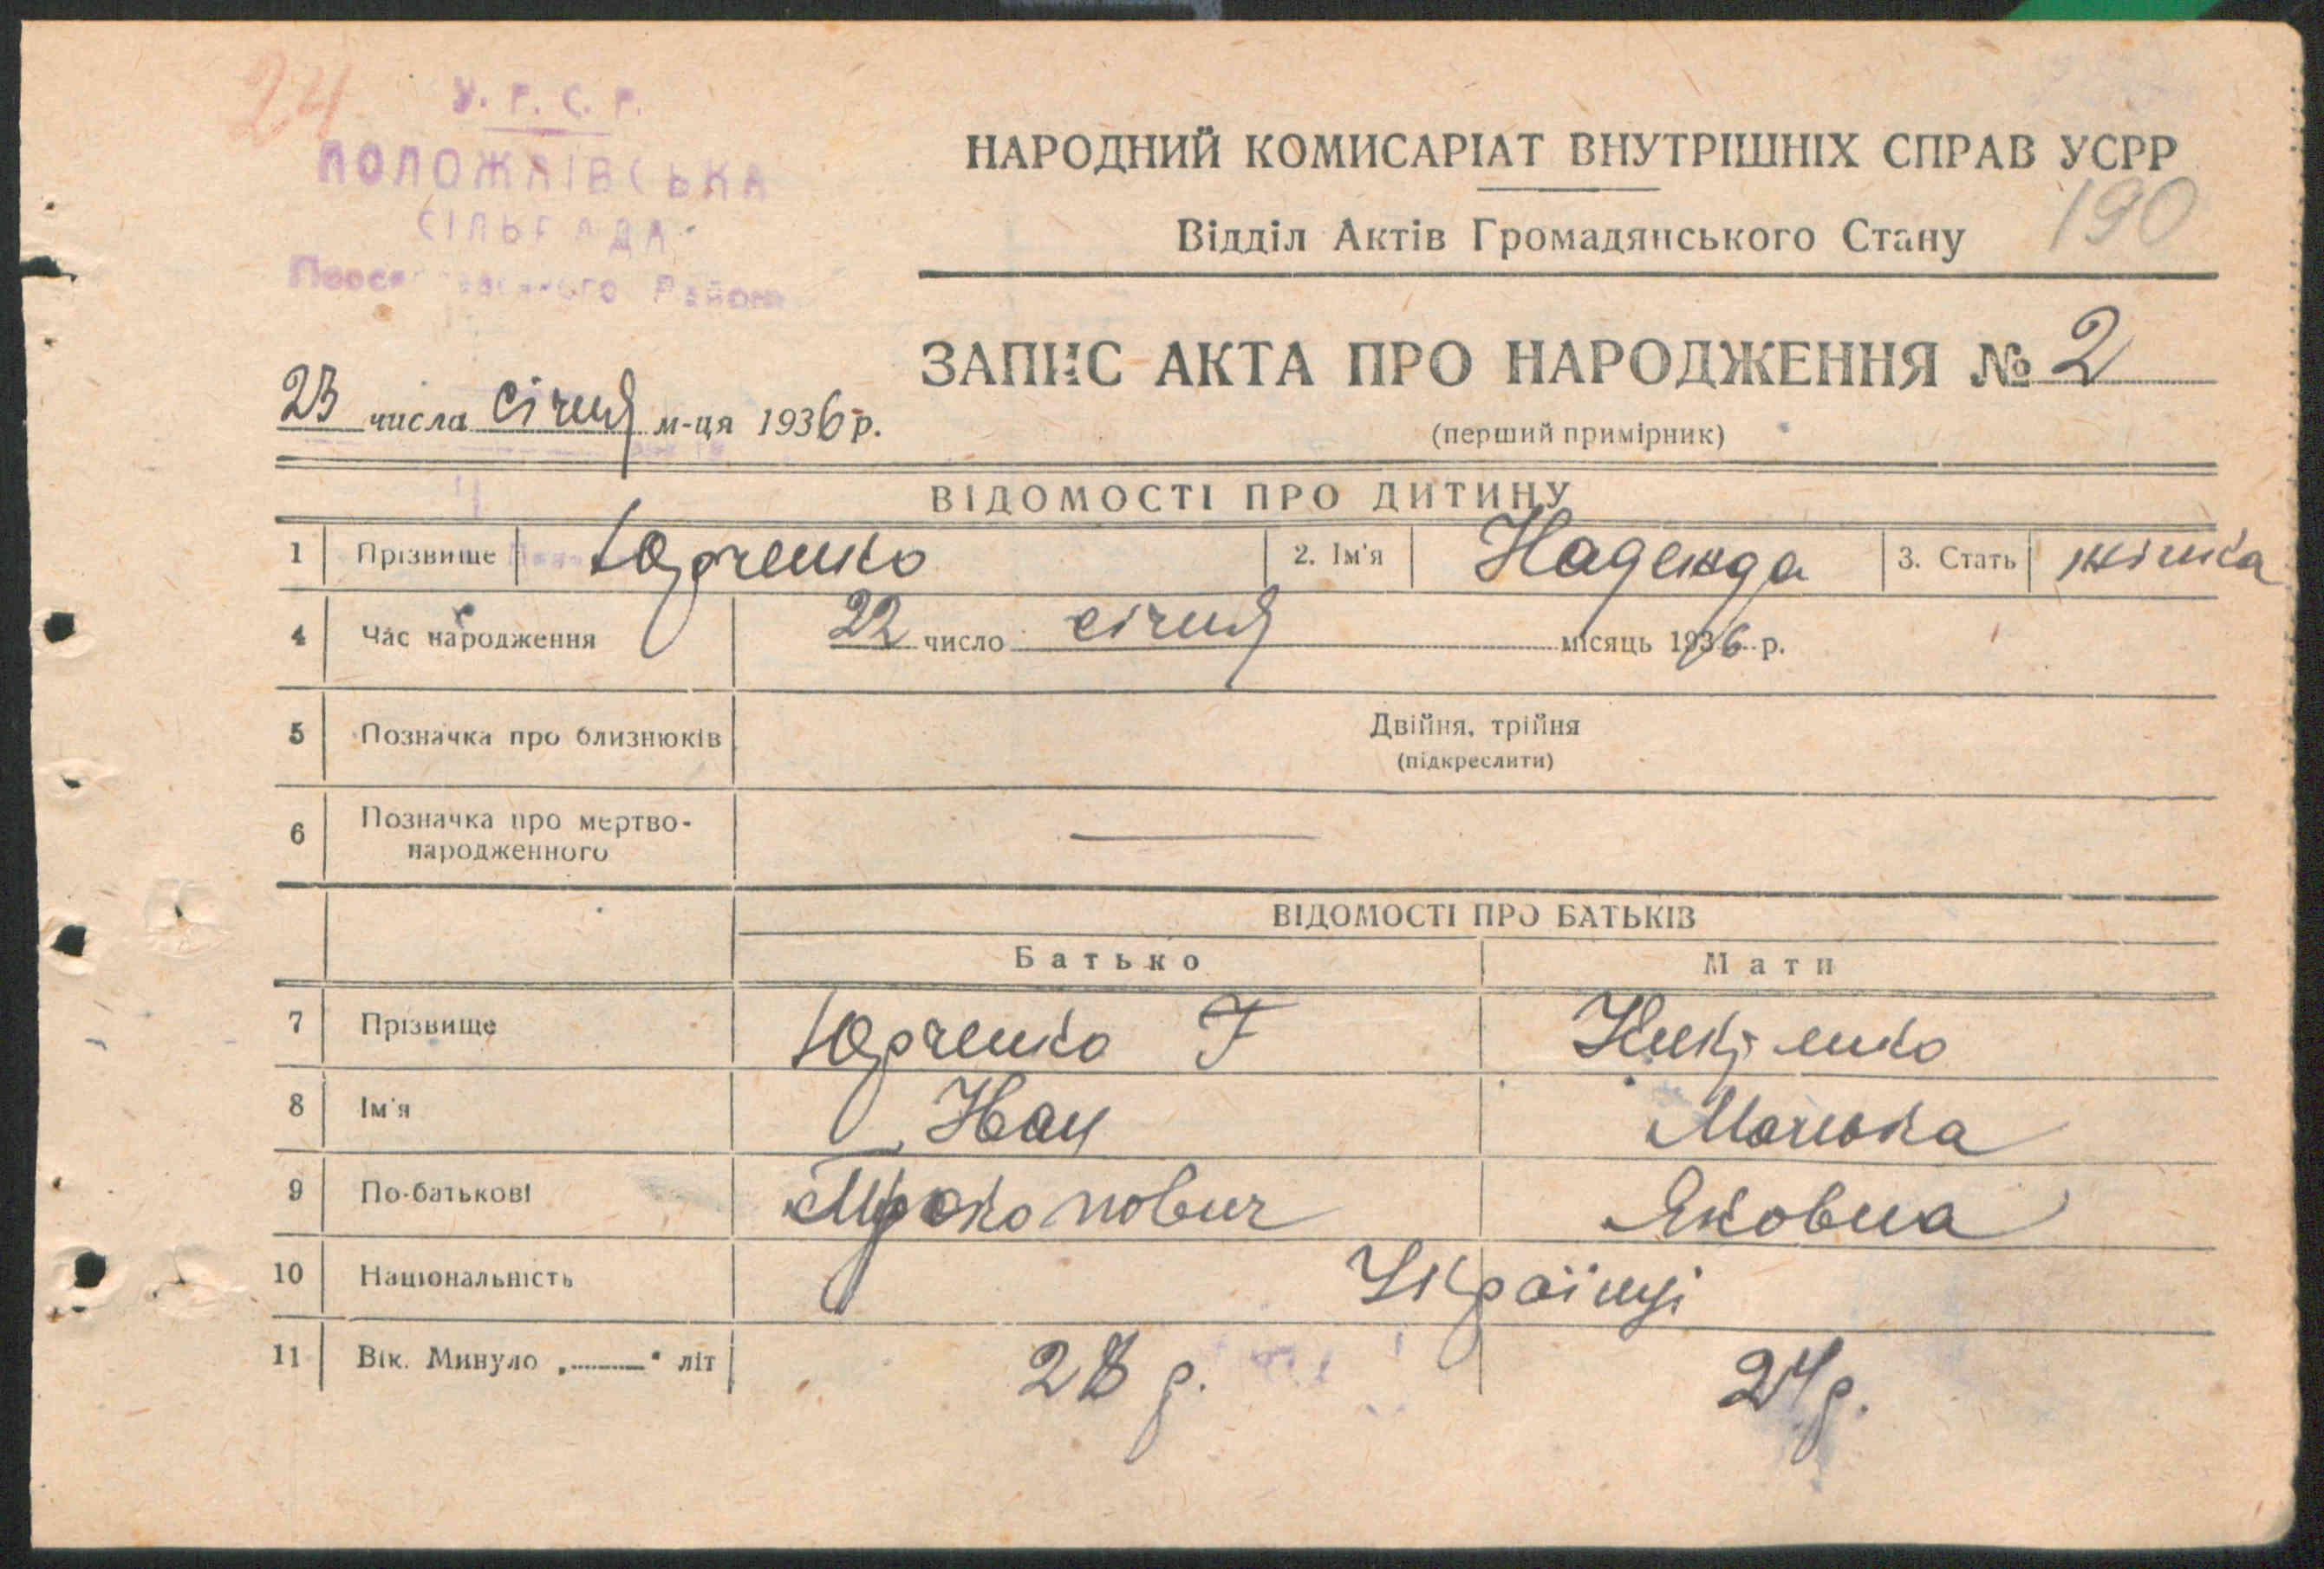 24
У. Р. С. Р.
ПОЛОЖАЇВСЬКА
СІЛЬРАДА
Району
НАРОДНИЙ КОМИСАРІАТ ВНУТРІШНІХ СПРАВ УСРР
190
Відділ Актів Громадянського Стану
ЗАПИС АКТА ПРО НАРОДЖЕННЯ № 2
23 числа січня м-ця 1936 р.
(перший примірник)
ВІДОМОСТІ ПРО ДИТИНУ
1 Прізвище Юрченко 2. Ім'я Надежда 3. Стать жінка
4 Час народження 22 число січня місяць 1936 р.
5 Позначка про близнюків Двійня, трійня
(підкреслити)
6 Позначка про мертво-
народженного —
ВІДОМОСТІ ПРО БАТЬКІВ
Батько Мати
7 Прізвище Юрченко
8 Ім'я Иван Манька
9 По-батькові Прокопович Яковна
10 Національність Українці
11 Вік. Минуло „——" літ 28 р. 24 р.